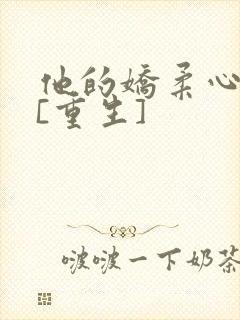 他的嬌柔心
[重生]
啵啵一下奶茶